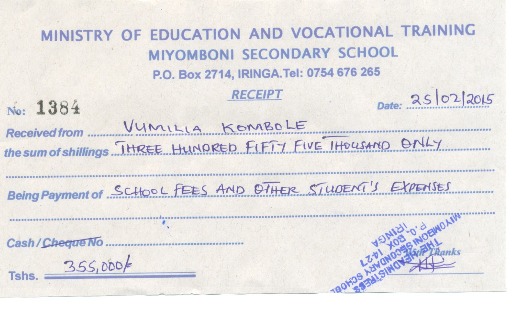 MINISTRY OF EDUCATION AND VOCATIONAL TRAINING
MIYOMBONI SECONDARY SCHOOL
P.O. Box 2714, IRINGA.Tel: 0754 676 265
RECEIPT
No: 1384 Date: 25/02/2015
Received from VUMILIA KOMBOLE
the sum of shillings THREE HUNDRED FIFTY FIVE THOUSAND ONLY
Being Payment of SCHOOL FEES AND OTHER STUDENT'S EXPENSES
Cash/Cheque No
Thanks
Tshs. 355,000/
THE HEADMISTRESS
MIYOMBONI SECONDARY SCHOOL
P.O. BOX 14-27
IRINGA